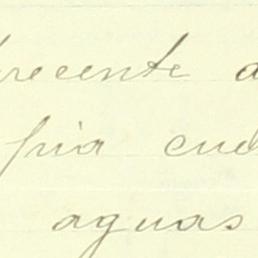 recente a
fria cud
aguas